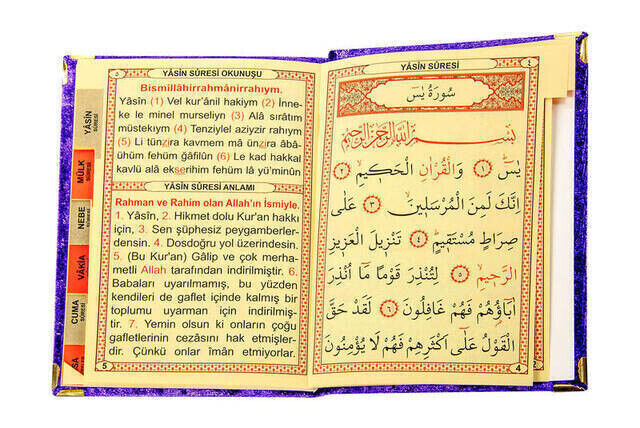 YÂSÎN SÛRESİ OKUNUŞU
٥
Bismillâhirrahmânirrahıym.
Yâsîn (1) Vel kur'ânil hakiym (2) İnne-
ke le minel murseliyn (3) Alâ sırâtım
müstekıym (4) Tenziylel aziyzir rahıym
(5) Li tünzira kavmem mâ ünzira âbâ-
ühüm fehüm ğâfilûn (6) Le kad hakkal
kavlü alâ ekserihim fehüm lâ yü'minûn
YÂSÎN SÛRESİ ANLAMI
Rahman ve Rahim olan Allah'ın İsmiyle.
1. Yâsîn, 2. Hikmet dolu Kur'an hakkı
için, 3. Sen şüphesiz peygamberler-
densin. 4. Dosdoğru yol üzerindesin.
5. (Bu Kur'an) Gâlip ve çok merha-
metli Allah tarafından indirilmiştir. 6.
Babaları uyarılmamış, bu yüzden
kendileri de gaflet içinde kalmış bir
toplumu uyarman için indirilmiş-
tir. 7. Yemin olsun ki onların çoğu
gafletlerinin cezasını hak etmişler-
dir. Çünkü onlar îmân etmiyorlar.
5
YÂSÎN
SÛRESİ
MÜLK
SÛRESİ
NEBE
SÛRESİ
VÂKIA
SÛRESİ
CUMA
SÛRESİ
YÂSÎN SÛRESİ
٤
سُورَةُ يٰسٓ
بِسْمِ اللّٰهِ الرَّحْمٰنِ الرَّحِيمِ
يٰسٓ ١ وَالْقُرْاٰنِ الْحَكِيمِۙ ٢
اِنَّكَ لَمِنَ الْمُرْسَلِينَۙ ٣ عَلٰى
صِرَاطٍ مُسْتَقِيمٍۜ ٤ تَنْزِيلَ الْعَزِيزِ
الرَّحِيمِۙ ٥ لِتُنْذِرَ قَوْمًا مَٓا اُنْذِرَ
اٰبَٓاؤُ۬هُمْ فَهُمْ غَافِلُونَ ٦ لَقَدْ حَقَّ
الْقَوْلُ عَلٰٓى اَكْثَرِهِمْ فَهُمْ لَا يُؤْمِنُونَ
4
2